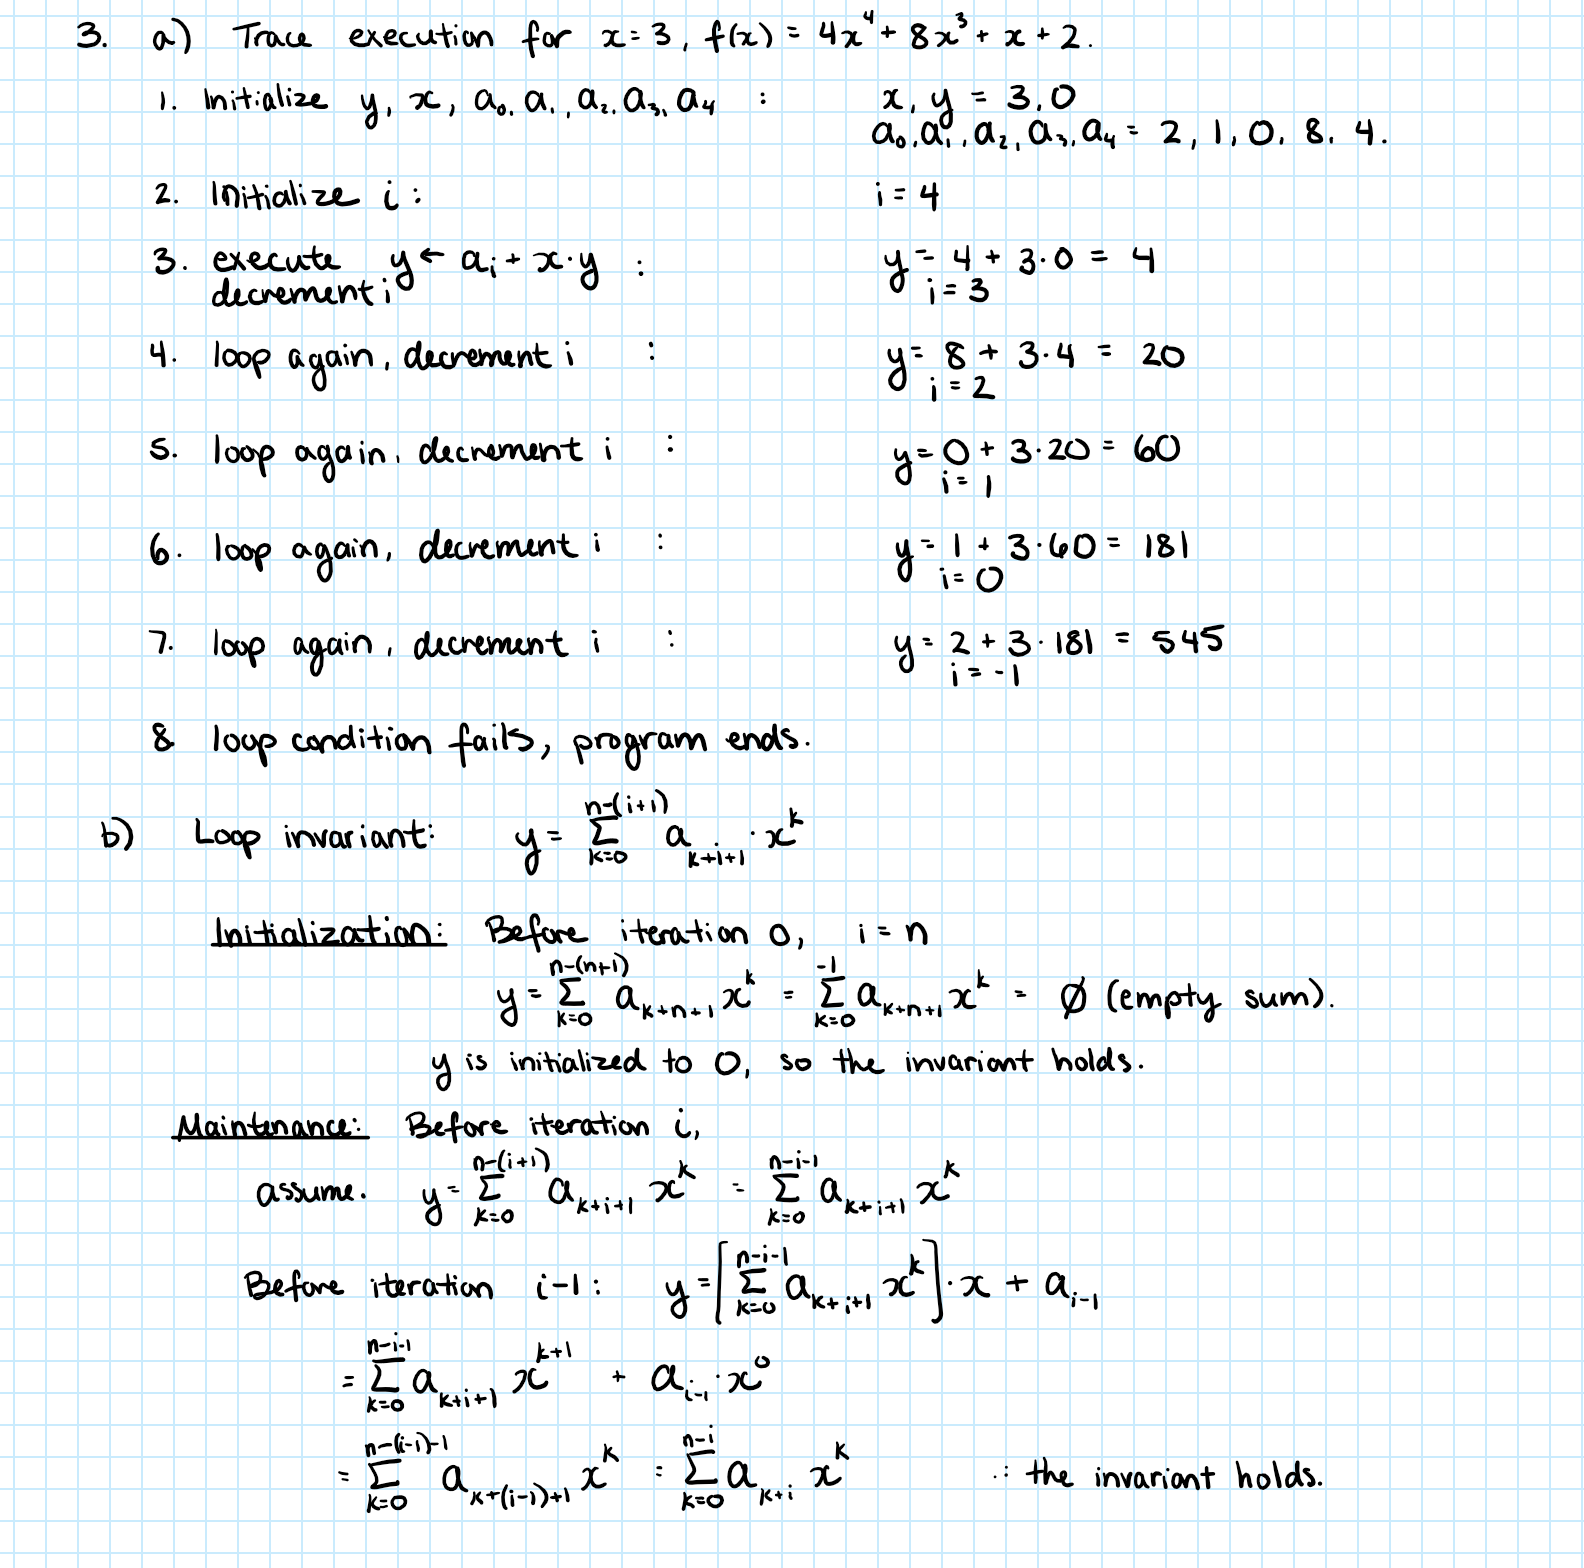 3. a) Trace execution for x = 3, f(x) = 4x⁴ + 8x³ + x + 2.
1. Initialize y, x, a₀, a₁, a₂, a₃, a₄ : x, y = 3, 0
a₀, a₁, a₂, a₃, a₄ = 2, 1, 0, 8, 4.
2. Initialize i : i = 4
3. execute y ← aᵢ + x·y : y = 4 + 3·0 = 4
decrement i i = 3
4. loop again, decrement i : y = 8 + 3·4 = 20
i = 2
5. loop again, decrement i : y = 0 + 3·20 = 60
i = 1
6. loop again, decrement i : y = 1 + 3·60 = 181
i = 0
7. loop again, decrement i : y = 2 + 3·181 = 545
i = -1
8 loop condition fails, program ends.
b) Loop invariant: y = Σ_{k=0}^{n-(i+1)} a_{k+i+1} · x^k
Initialization: Before iteration 0, i = n
y = Σ_{k=0}^{n-(n+1)} a_{k+n+1} x^k = Σ_{k=0}^{-1} a_{k+n+1} x^k = Ø (empty sum).
y is initialized to 0, so the invariant holds.
Maintenance: Before iteration i,
assume. y = Σ_{k=0}^{n-(i+1)} a_{k+i+1} x^k = Σ_{k=0}^{n-i-1} a_{k+i+1} x^k
Before iteration i-1: y = [Σ_{k=0}^{n-i-1} a_{k+i+1} x^k] · x + a_{i-1}
= Σ_{k=0}^{n-i-1} a_{k+i+1} x^{k+1} + a_{i-1} · x⁰
= Σ_{k=0}^{n-(i-1)-1} a_{k+(i-1)+1} x^k = Σ_{k=0}^{n-i} a_{k+i} x^k ∴ the invariant holds.